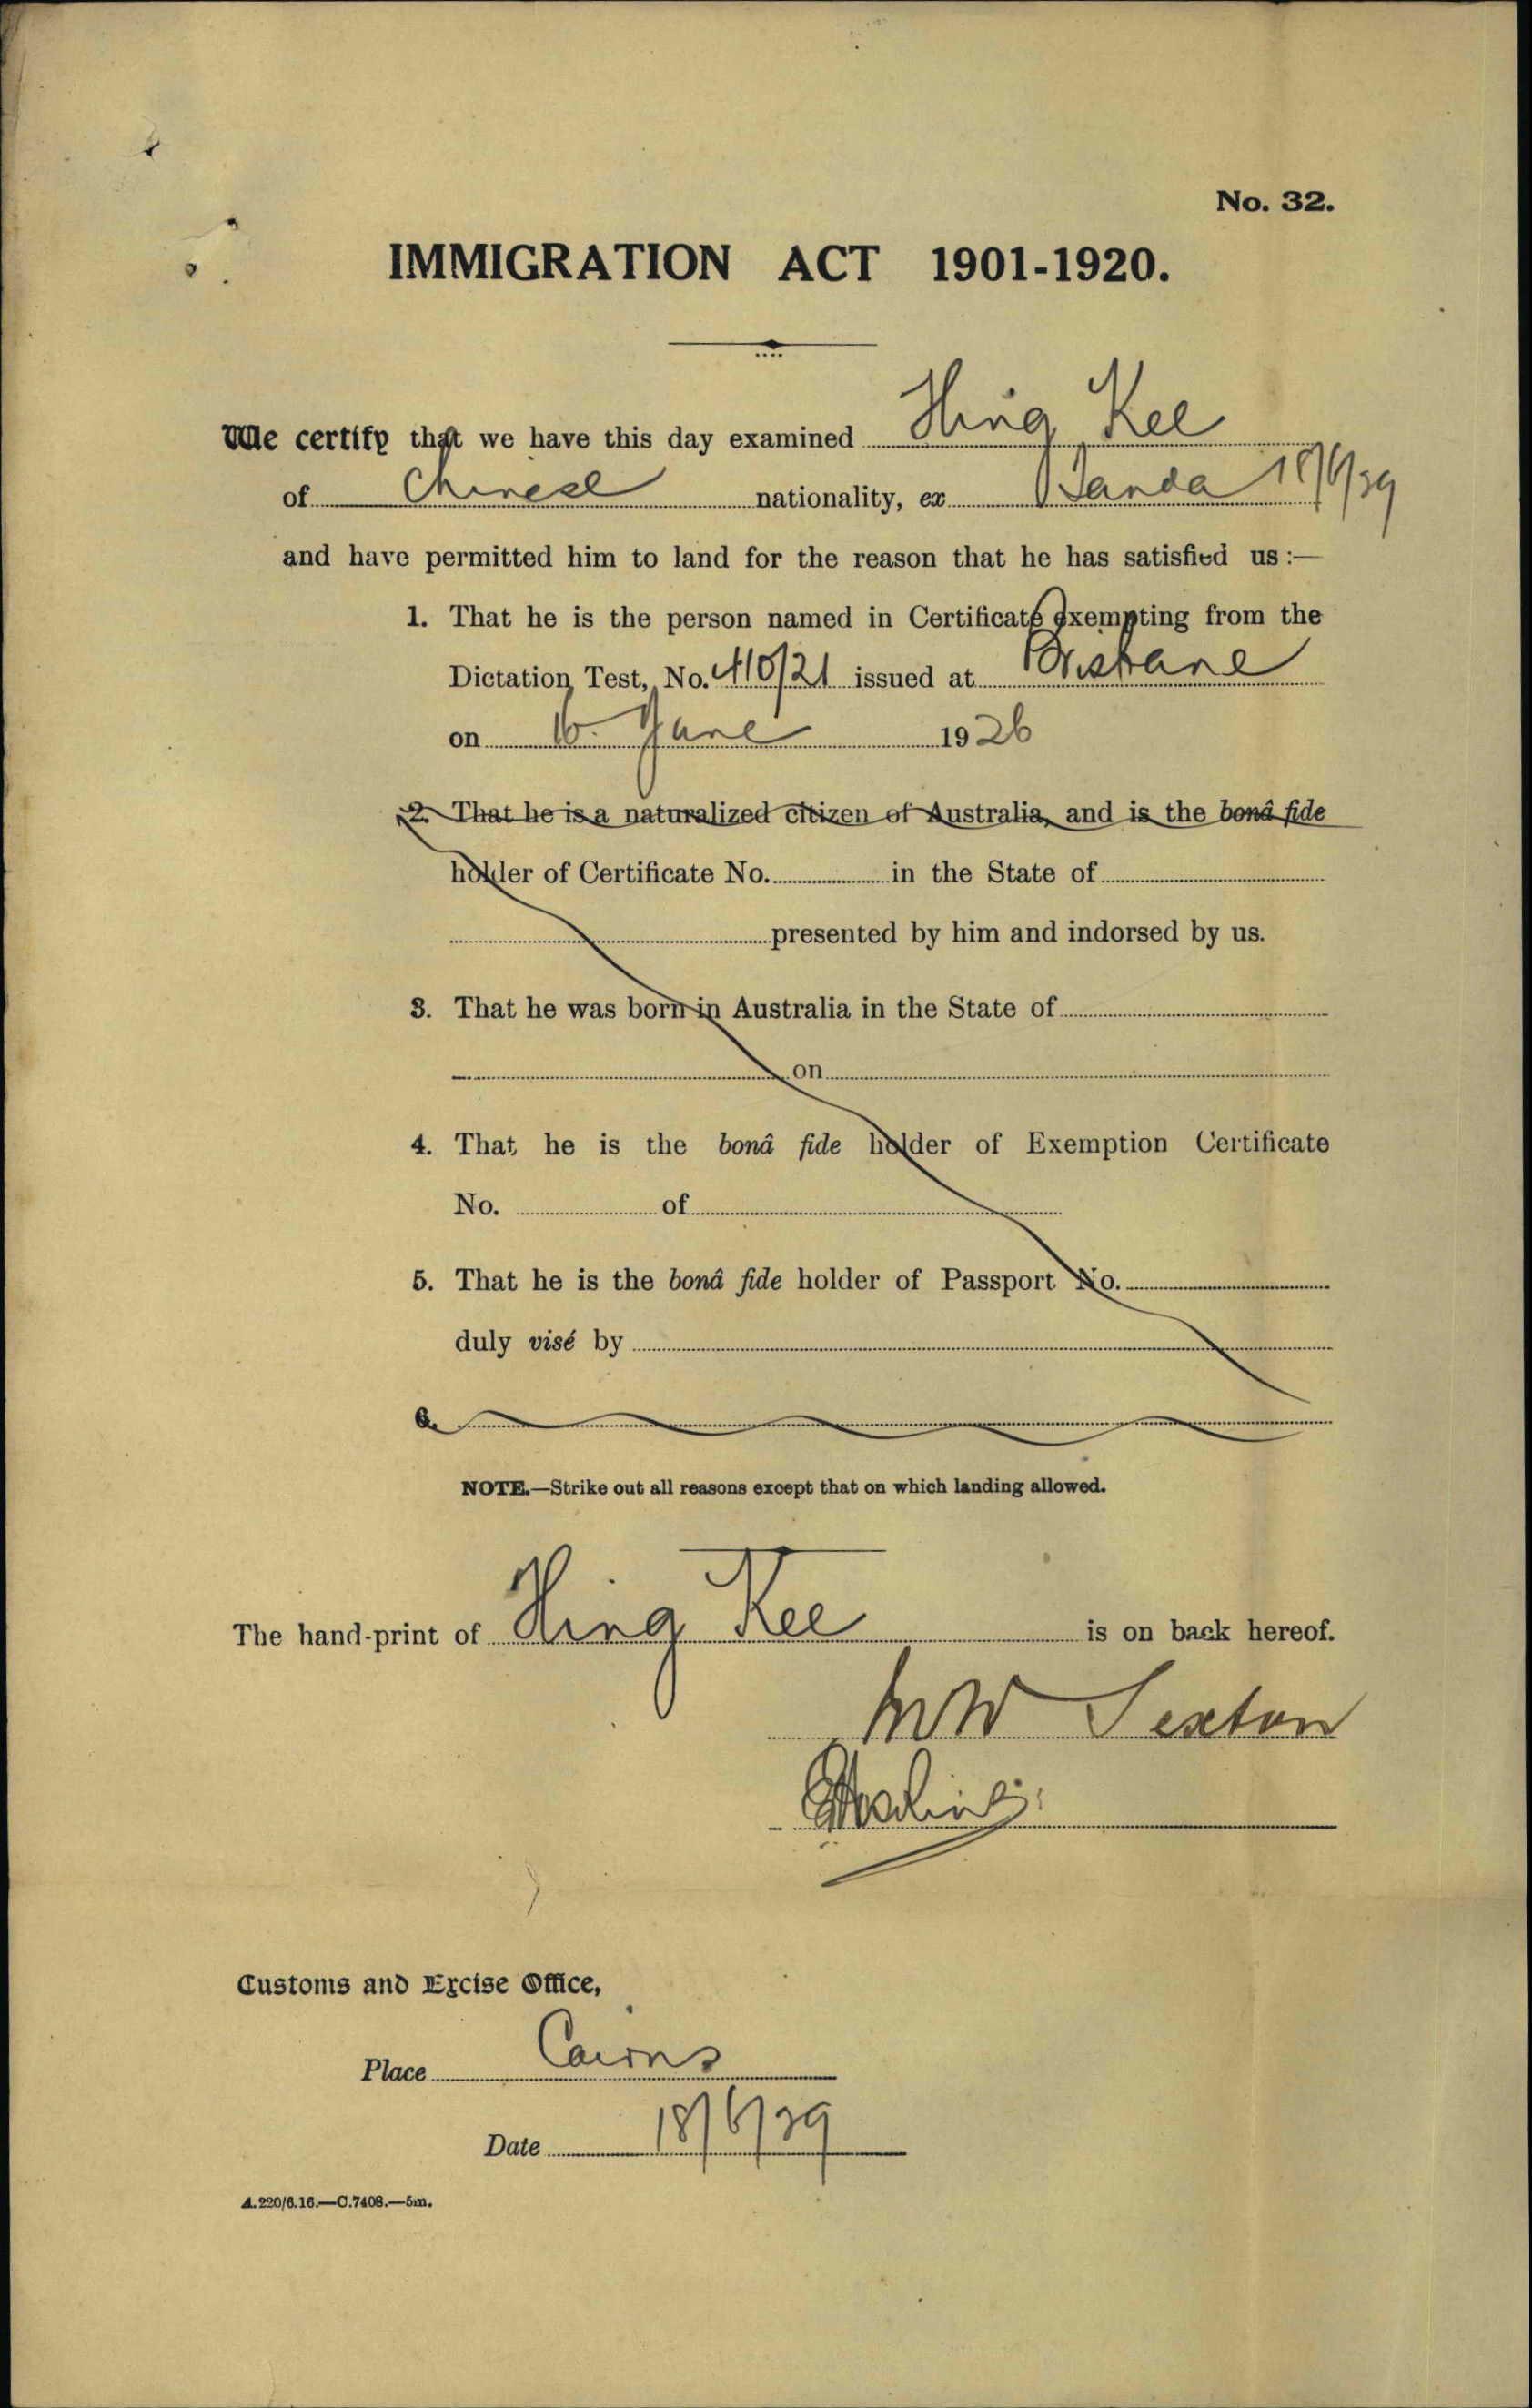 No. 32.
IMMIGRATION ACT 1901-1920.
We certify that we have this day examined Hing Kee
of Chinese nationality, ex Tanda 18/6/39
and have permitted him to land for the reason that he has satisfied us:—
1. That he is the person named in Certificate exempting from the
Dictation Test, No. 410/21 issued at Brisbane
on 16. June 1926
2. That he is a naturalized citizen of Australia, and is the bonâ fide
holder of Certificate No. in the State of
presented by him and indorsed by us.
3. That he was born in Australia in the State of
on
4. That he is the bonâ fide holder of Exemption Certificate
No. of
5. That he is the bonâ fide holder of Passport No.
duly visé by
6.
NOTE.—Strike out all reasons except that on which landing allowed.
The hand-print of Hing Kee is on back hereof.
MW Sexton
Customs and Excise Office,
Place Cairns
Date 18/6/39
A.220/6.16.—C.7408.—5m.